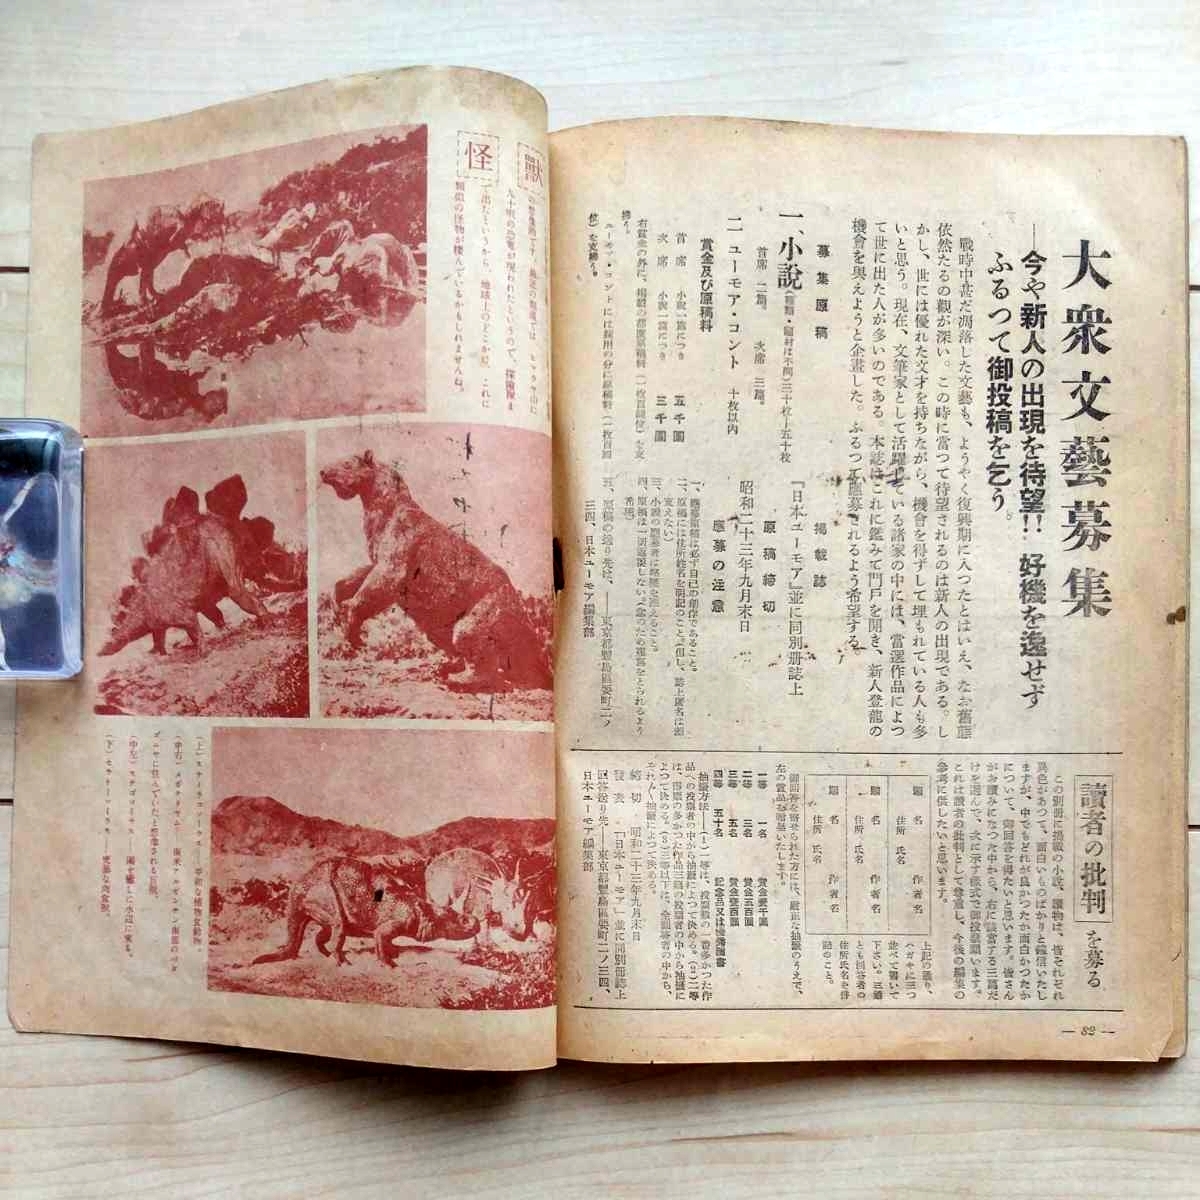 大衆文藝募集
――今や新人の出現を待望!! 好機を逸せず
ふるつて御投稿を乞う。
戰時中甚だ凋落した文藝も、ようやく復興期に入つたとはいえ、なお舊態
依然たるの觀が深い。この時に當つて待望されるのは新人の出現である。し
かし、世には優れた文才を持ちながら、機會を得ずして埋もれている人も多
いと思う。現在、文筆家として活躍している諸家の中には、當選作品によつ
て世に出た人が多いのである。本誌はこれに鑑みて門戸を開き、新人登龍の
機會を與えようと企畫した。ふるつて應募されるよう希望する。
募集原稿
一、小説(種類・題材は不問)三十枚―五十枚
首席 二篇。 次席 三篇。
二、ユーモア・コント 十枚以内
賞金及び原稿料
首席 小説一篇につき 五千圓
次席 小説一篇につき 三千圓
掲載誌
『日本ユーモア』並に同別册誌上
原稿締切
昭和二十三年九月末日
應募の注意
一、應募原稿は必ず自己の創作であること。
二、原稿には住所姓名を明記のこと。但し、誌上匿名は差
支えない)
三、小説の應募者は略歴を添えること。
四、原稿は一切返戻しない(念のため複寫をとられるよう
希望)
五、原稿の送り先は、――東京都豐島區要町二ノ
三四、日本ユーモア編集部
讀者の批判を募る
この別册に掲載の小説、讀物は、皆それぞれ
異色があつて、面白いものばかりと確信いたし
ますが、中でもどれが良かつたか面白かつたか
について、御回答を得たいと思います。皆さん
がお讀みになつた中から、右に該當する三篇だ
けを選んで、次に示す樣式で御投票願います。
これは讀者の批判として尊重し、今後の編集の
參考に供したいと思います。
題名 作者名
住所 氏名
題名 作者名
住所 氏名
題名 作者名
住所 氏名
上記の通り、
ハガキに三つ
並べて書いて
下さい。三通
とも回答者の
住所氏名を併
記のこと。
御回答を寄せられた方には、嚴正な抽籤のうえで、
左の賞品を贈呈いたします。
一等 一名 賞金壹千圓
二等 三名 賞金五百圓
三等 五名 賞金壹百圓
四等 五十名 記念品又は優秀圖書
抽籤方法――(1)一等は、投票數の一番多かつた作
品への投票者の中から抽籤によつて決める。(2)二等
は、得票の多かつた作品三篇の投票者の中から抽籤に
よつて決める。(3)三等以下は、全回答者の中から、
それ〴〵抽籤によつて決める。
締切 昭和二十三年九月末日
發表 『日本ユーモア』並に同別册誌上
回答送り先――東京都豐島區要町二ノ三四、
日本ユーモア編集部
― 82 ―
怪獸
九十呎の恐竜が現われたというので、探險隊ま
で出たというから、地球上のどこか尻、これに
類似の怪物が棲んでいるかもしれませんね。